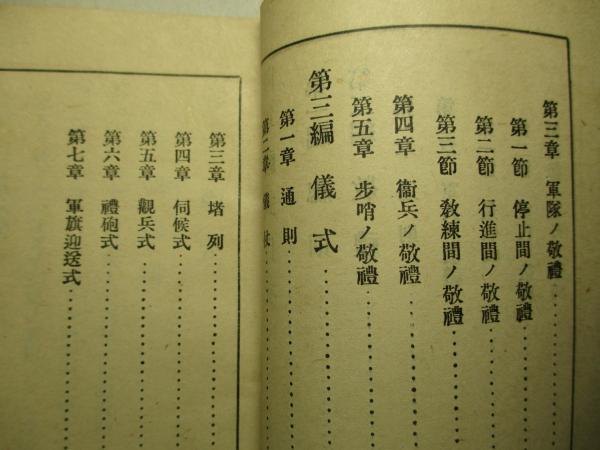 第三章 軍隊ノ敬禮
第一節 停止間ノ敬禮
第二節 行進間ノ敬禮
第三節 敎練間ノ敬禮
第四章 衞兵ノ敬禮
第五章 步哨ノ敬禮
第三編 儀式
第一章 通則
第二章 儀仗
第三章 堵列
第四章 伺候式
第五章 觀兵式
第六章 禮砲式
第七章 軍旗迎送式